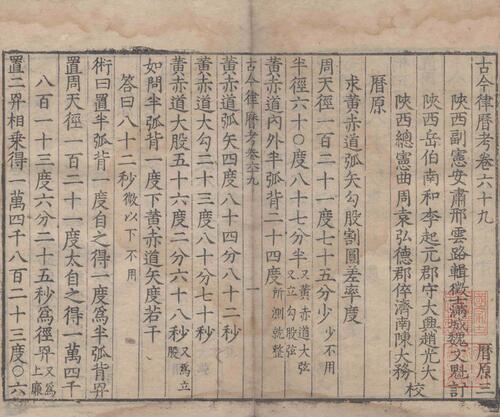 古今律曆考卷六十九 曆原三
陝西副憲安肅邢雲路輯徵士滿城魏文魁計
陝西岳伯南和李起元郡守大興趙光大
陝西總憲曲周袁弘德郡倅濟南陳大務 校
曆原
求黃赤道弧矢勾股割圓差率度
周天徑一百二十一度七十五分少少不用
半徑六十〇度八十七分半又黃赤道大弦又立勾股弦
黃赤道內外半弧背二十四度所測就整
古今律曆考卷六九 一
黃赤道矢四度八十四分八十二秒
黃赤道大勾二十三度八十分七十秒
黃赤道大股五十六度二分六十八秒又為立股
如問半弧背一度下黃赤道矢度若干
答曰八十二秒微以下不用
術曰置半弧背一度自之得一度為半弧背冪
置周天徑一百二十一度太自之得一萬四千
八百一十三度六分二十五秒為徑冪又為上廉
置二冪相乘得一萬四千八百二十三度〇六